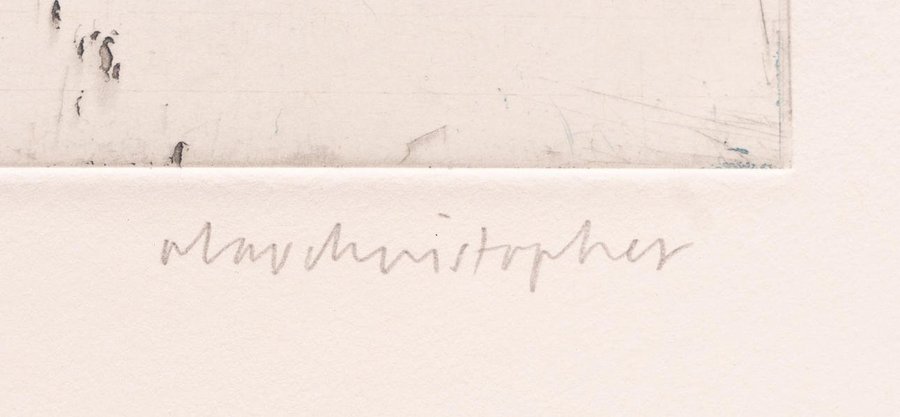 olav christopher